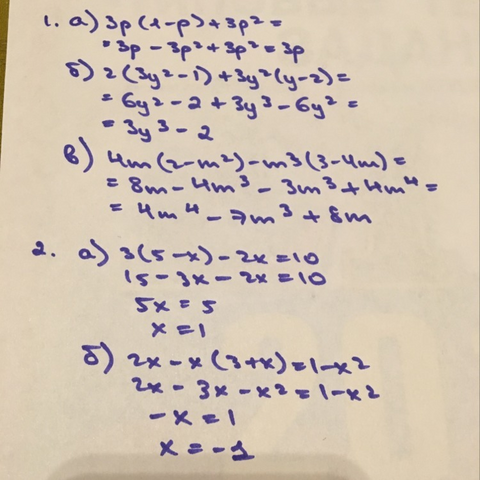 1. а) 3p(1-p)+3p²=
=3p-3p²+3p²=3p
б) 2(3y²-1)+3y²(y-2)=
=6y²-2+3y³-6y²=
=3y³-2
в) 4m(2-m²)-m³(3-4m)=
=8m-4m³-3m³+4m⁴=
=4m⁴-7m³+8m
2. а) 3(5-x)-2x=10
15-3x-2x=10
5x=5
x=1
б) 2x-x(3+x)=1-x²
2x-3x-x²=1-x²
-x=1
x=-1